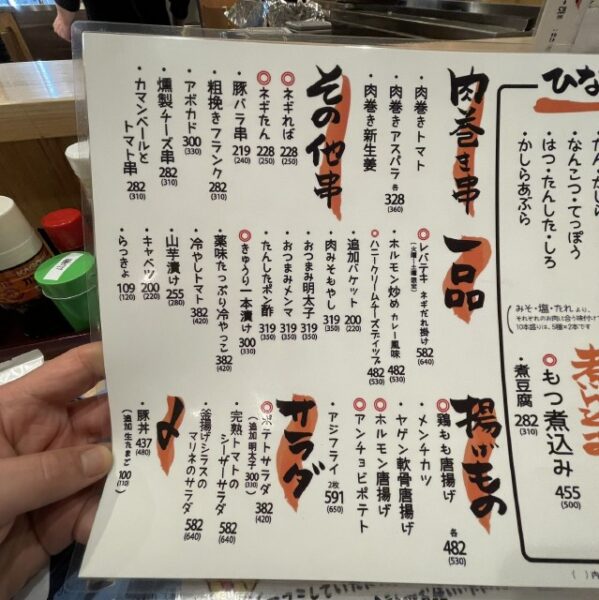 ひな
たん・かしら
・なんこつ・てっぽう
・はつ・たんした・しろ
・かしらあぶら
みそ・塩・たれ より、
それぞれのお肉に合う味付け
10本盛りは、5種×2本です
煮込み
◎もつ煮込み 455 (500)
・煮豆腐 282 (310)
肉巻き串
・肉巻きトマト
・肉巻きアスパラ 各 328 (360)
・肉巻き新生姜
その他串
◎ネギればー 228 (250)
◎ネギたん 228 (250)
・豚バラ串 219 (240)
・粗挽きフランク 282 (310)
・アボカド 300 (330)
・燻製チーズ串 282 (310)
・カマンベールと
トマト串 282 (310)
一品
◎レバテキ ネギだれ掛け 582 (640)
・ホルモン炒め カレー風味 482 (530)
◎ハニークリームチーズディップ 482 (530)
・追加バケット 200 (220)
・肉みそもやし 319 (350)
・おつまみ明太子 319 (350)
・おつまみメンマ 319 (350)
・たんしたポン酢 319 (350)
◎きゅうり一本漬け 300 (330)
・薬味たっぷり冷やっこ 382 (420)
・冷やしトマト 382 (420)
・山芋漬け 255 (280)
・キャベツ 200 (220)
・らっきょ 109 (120)
揚げもの
◎鶏もも唐揚げ
・メンチカツ
・ヤゲン軟骨唐揚げ 各 482 (530)
◎ホルモン唐揚げ
◎アンチョビポテト
・アジフライ 2枚 591 (650)
サラダ
◎ポテトサラダ 382 (420)
(追加明太子 300 (330))
・完熟トマトの
シーザーサラダ 582 (640)
・釜揚げシラスの
マリネのサラダ 582 (640)
〆
・豚丼 437 (480)
(追加生たまご 100 (110))
( )内